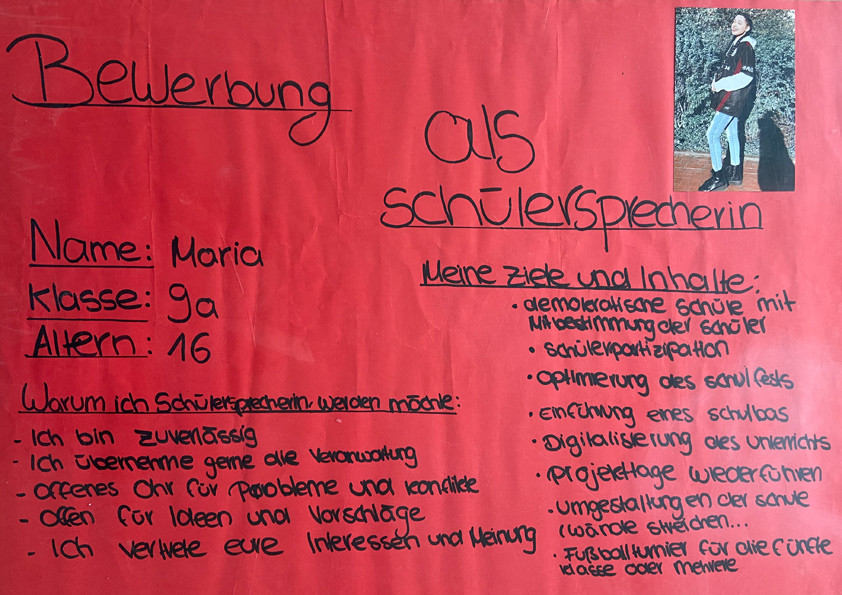 Bewerbung
als
Schülersprecherin
Name: Maria
Klasse: 9a
Altern: 16
Warum ich Schülersprecherin werden möchte:
- Ich bin zuverlässig
- Ich übernehme gerne die Verantwortung
- Offenes Ohr für Probleme und Konflikte
- Offen für Ideen und Vorschläge
- Ich vertrete eure Interessen und Meinung
Meine Ziele und Inhalte:
• demokratische Schule mit
Mitbestimmung der Schüler
• Schülerpartizipation
• Optimierung des Schulfests
• Einführung eines Schulbas
• Digitalisierung des Unterrichts
• Projekttage wiederführen
• Umgestaltungen der Schule
(Wände streichen...
• Fußballturnier für die fünfte
Klasse oder mehrere